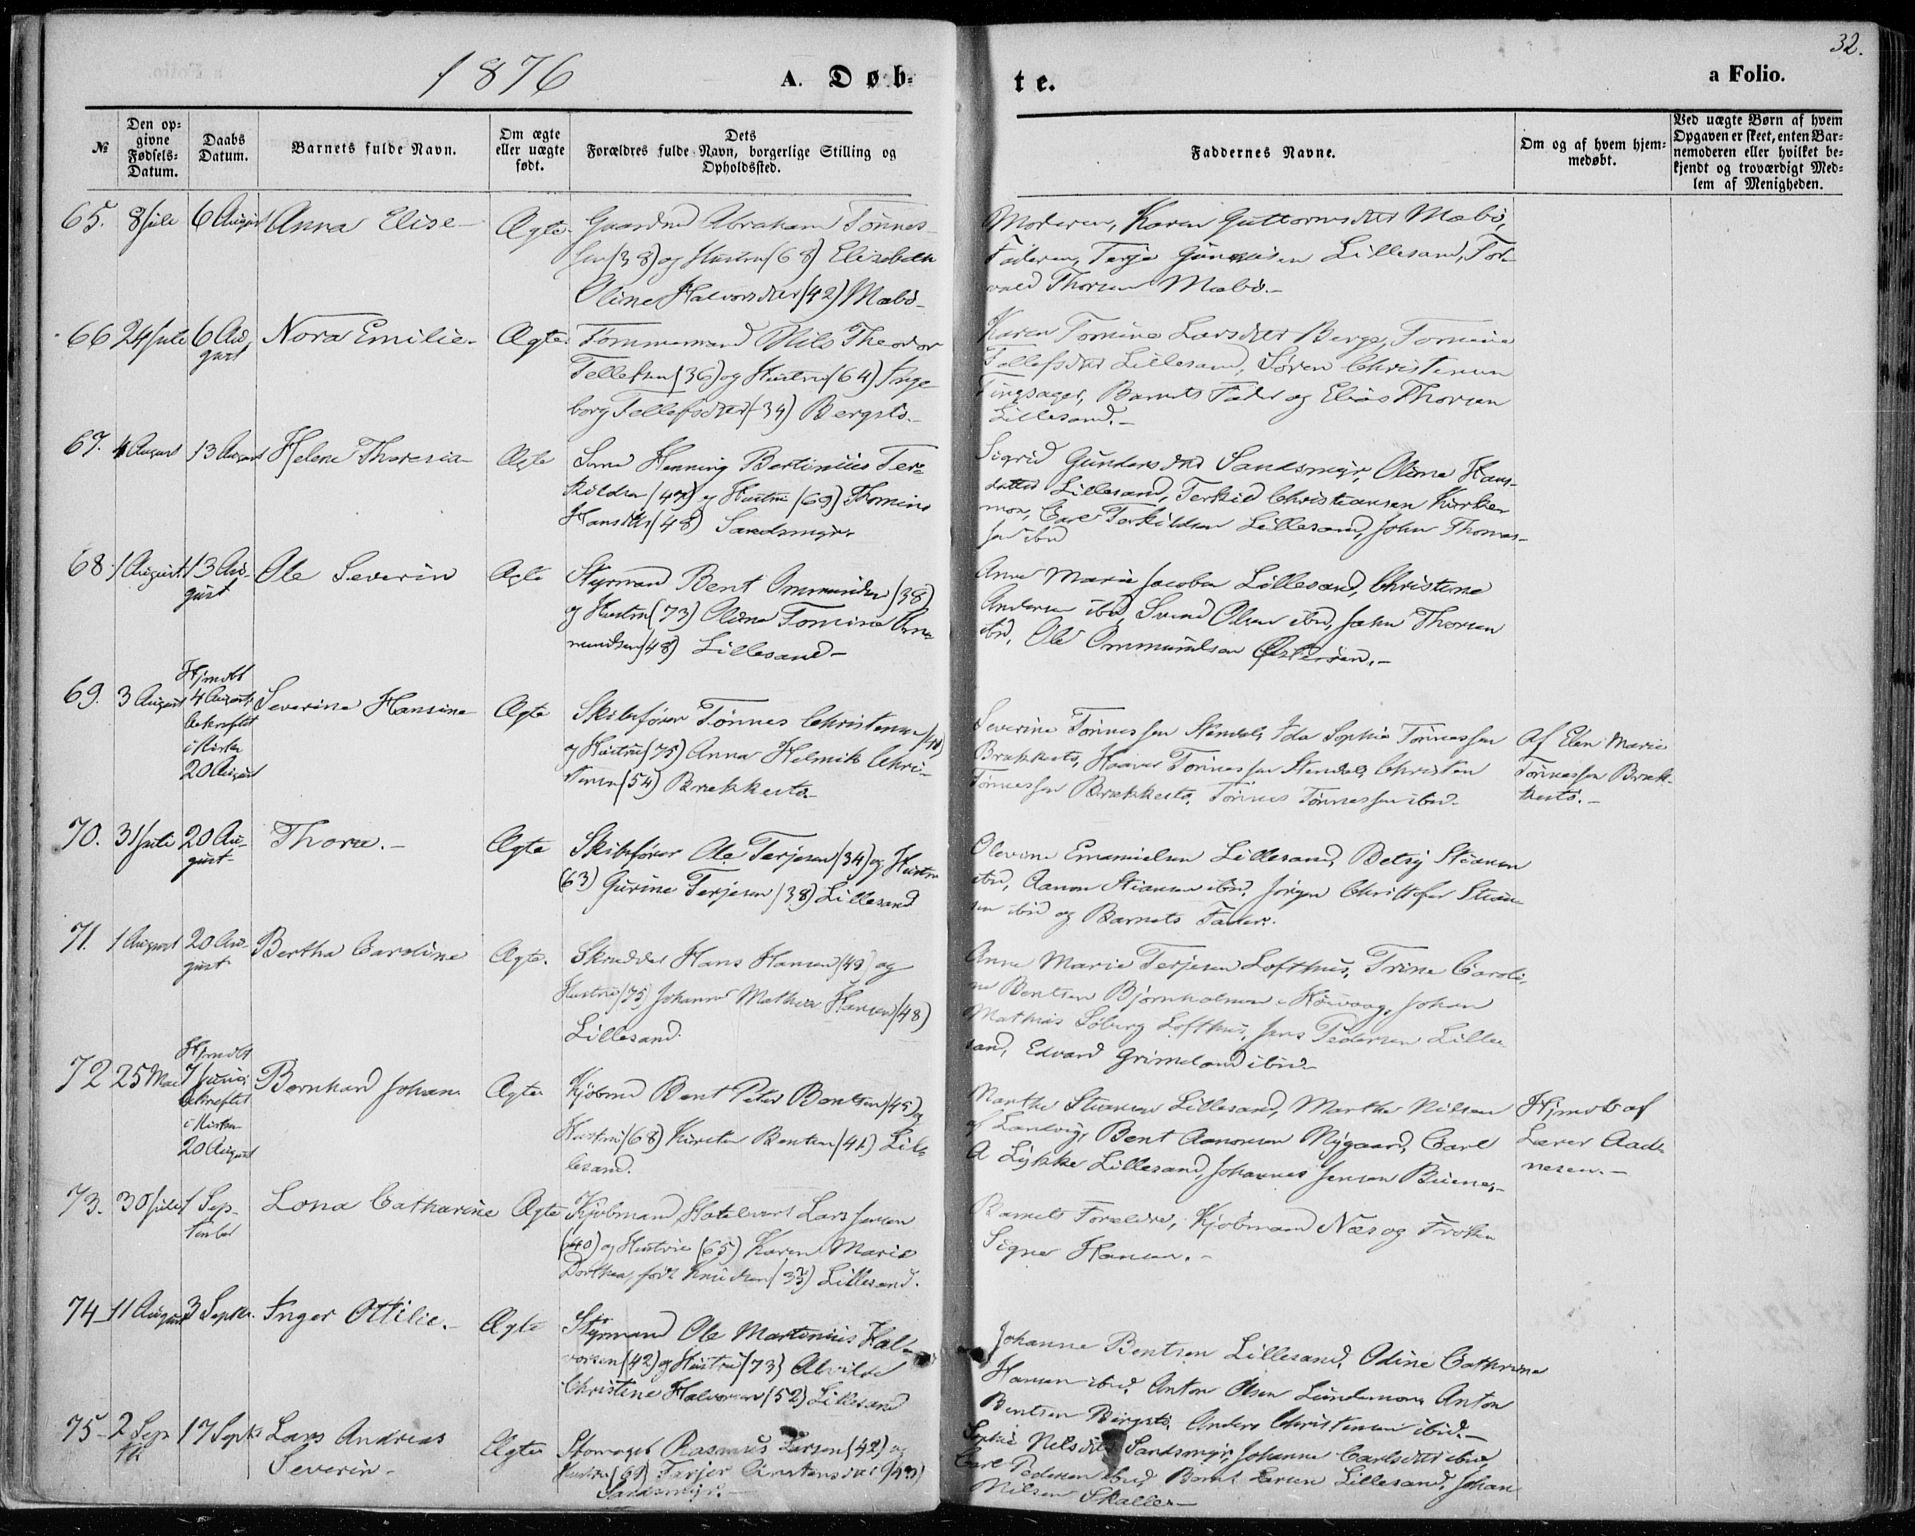 1876
A. Døb-
te.
32.
a Folio.
№
Den op-
givne
Fødsels-
Datum.
Daabs
Datum.
Barnets fulde Navn.
Om ægte
eller uægte
født.
Dets
Forældres fulde Navn, borgerlige Stilling og
Opholdssted.
Faddernes Navne.
Om og af hvem hjem-
medøbt.
Ved uægte Børn af hvem
Opgaven er skeet, enten Bar-
nemoderen eller hvilket be-
kjendt og troværdigt Med-
lem af Menigheden.
65. 8 Juli 6 August Anna Elise Ægte Gaardmd Abraham Tønnes-
sen (38) og Hustru (68) Elisabeth
Oline Halvorsdtter (42) Mæbø
Moderen, Karen Guttormsdtter Mæbø,
Faderen, Terje Lillesand,
Thorsen Mæbø.
66 24 Juli 6 Au-
gust
Nora Emilie Ægte Tømmermand Nils Theodor
Tellefsen (36) og Hustru (64) Inge-
borg Tellefsdtter (34) Bergstø
Karen Tomine Larsdtter Berge, Tomine
Tellefsdtter Lillesand, Søren Christensen
Tingsager, Barnets Fader og Elias Thorsen
Lillesand.
67. 4 August 13 August Helene Theresia Ægte Henning Bertinius Ter-
kildsen (47) og Hustru (69) Thomine
Hansdtter (48) Sandsmyr
Sigrid Gundersdtter Sandsmyr, Oline Hans-
datter Lillesand, Terkild Christiansen Kirke-
mon, Carl Terkildsen Lillesand, John Thomas-
sen ibid
68. 1 August 13 Au-
gust
Ole Severin Ægte Styrmand Bent Ommundsen (38)
og Hustru (73) Oline Tomine Om-
mundsen (48) Lillesand
Anne Marie Jacobsen Lillesand, Christine
Andersen ibid, Svend Olsen ibid, John Thorsen
ibid, Ole Ommundsen Østerøen.
69. 3 August Hjmdbt
4 August
bekræftet
i Kirken
20 August
Severine Hansine Ægte Skibsfører Tønnes Christensen (40)
og Hustru (75) Anna Helmike Chri-
stensen (54) Brækkestø
Severine Tønnessen Stendal, Ida Sophie Tønnessen
Brækkestø, Haaver Tønnessen Stendal, Christen
Tønnessen Brækkestø, Tønnes Tønnessen ibid.
Af Elen Marie
Tønnessen Bræk-
kestø.
70. 31 Juli 20 Au-
gust
Thora. Ægte Skibsfører Ole Terjesen (34) og Hustru
(63) Gurine Terjesen (38) Lillesand
Olevine Emanuelsen Lillesand, Betsy Stiansen
ibid, Aanon Stiansen ibid, Jörgen Christofer Stian-
sen ibid og Barnets Fader.
71. 1 August 20 Au-
gust
Bertha Caroline Ægte. Skrædder Hans Hansen (49) og
Hustru (75) Johanne Mathea Hansen (48)
Lillesand.
Anne Marie Terjesen Lofthus, Trine Caroli-
ne Bentsen Bjørnholmen i Høivaag, Johan
Mathias Söberg Lofthus, Jens Pedersen Lille-
sand, Edvard Grimeland ibid.
72 25 Mai Hjmdbt
7 Juni
bekræftet
i Kirken
20 August
Bernhard Johan Ægte Kjøbmd Bent Peter Bentsen (45) og
Hustru (68) Kirsten Bentsen (41) Lil-
lesand.
Marthe Stiansen Lillesand, Marthe Nilsen
af Landvig, Bent Aanonsen Nygaard, Carl
A Lykke Lillesand, Johannes Jensen Buene.
Hjmdbt af
Lærer Aad-
nesen.
73. 30 Juli 1 Sep-
tember
Lona Catharine Ægte Kjøbmand Lars Jensen
(40) og Hustru (65) Karen Marie
Dorthea, født Knudsen (33) Lillesand.
Barnets Forældre, Kjøbmand Næs og Frøken
Signe Hansen.
74 11 August 3 Septbr. Inger Ottilie. Ægte Styrmand Ole Martinius Hal-
vorsen (42) og Hustru (73) Alvilde
Christine Halvorsen (52) Lillesand
Johanne Bentsen Lillesand, Odine Cathrine
Hansen ibid, Anton Olsen Lundemon, Anton
Bentsen Bergstø, Anders Christensen ibid.
75 2 Sep
tbr
17 Septbr Lars Andreas
Severin
Ægte Rasmus Larsen (42) og
Hustru (69) (43)
Sandsmyr.
Sophie Nilsdtter Sandsmyr, Johanne Carlsdtter ibid,
Carl Pedersen ibid, Bernt Larsen Lillesand, Johan
Nilsen Skallen